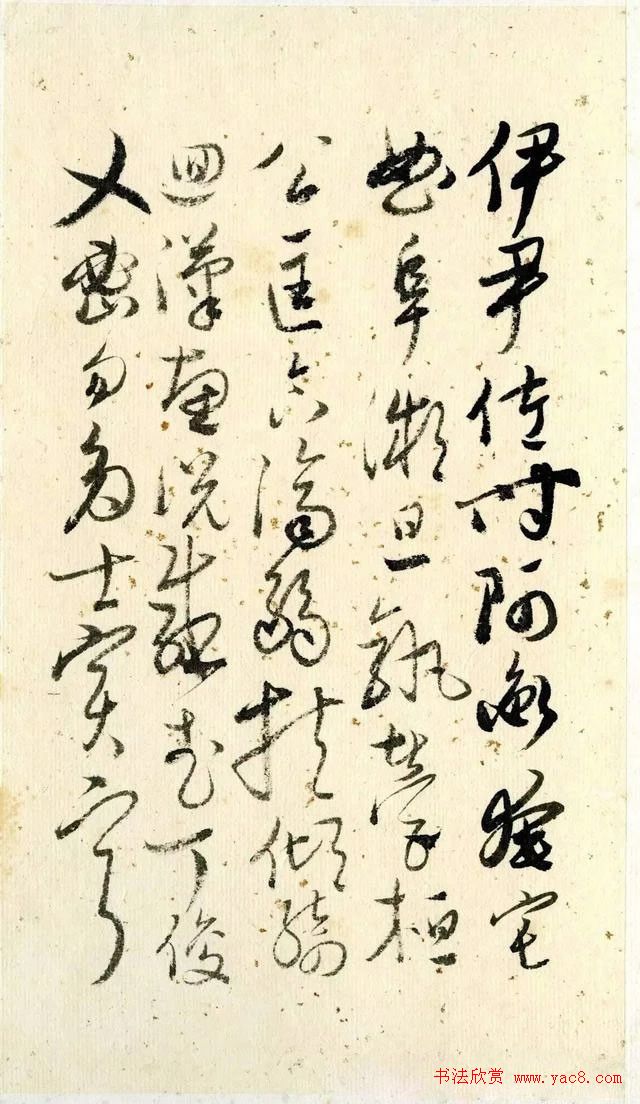 伊尹佐时阿衡奄宅
曲阜微旦孰营桓
公匡合济弱扶倾绮
迴汉惠说感武丁俊
乂密勿多士寔宁
书法欣赏 www.yac8.com